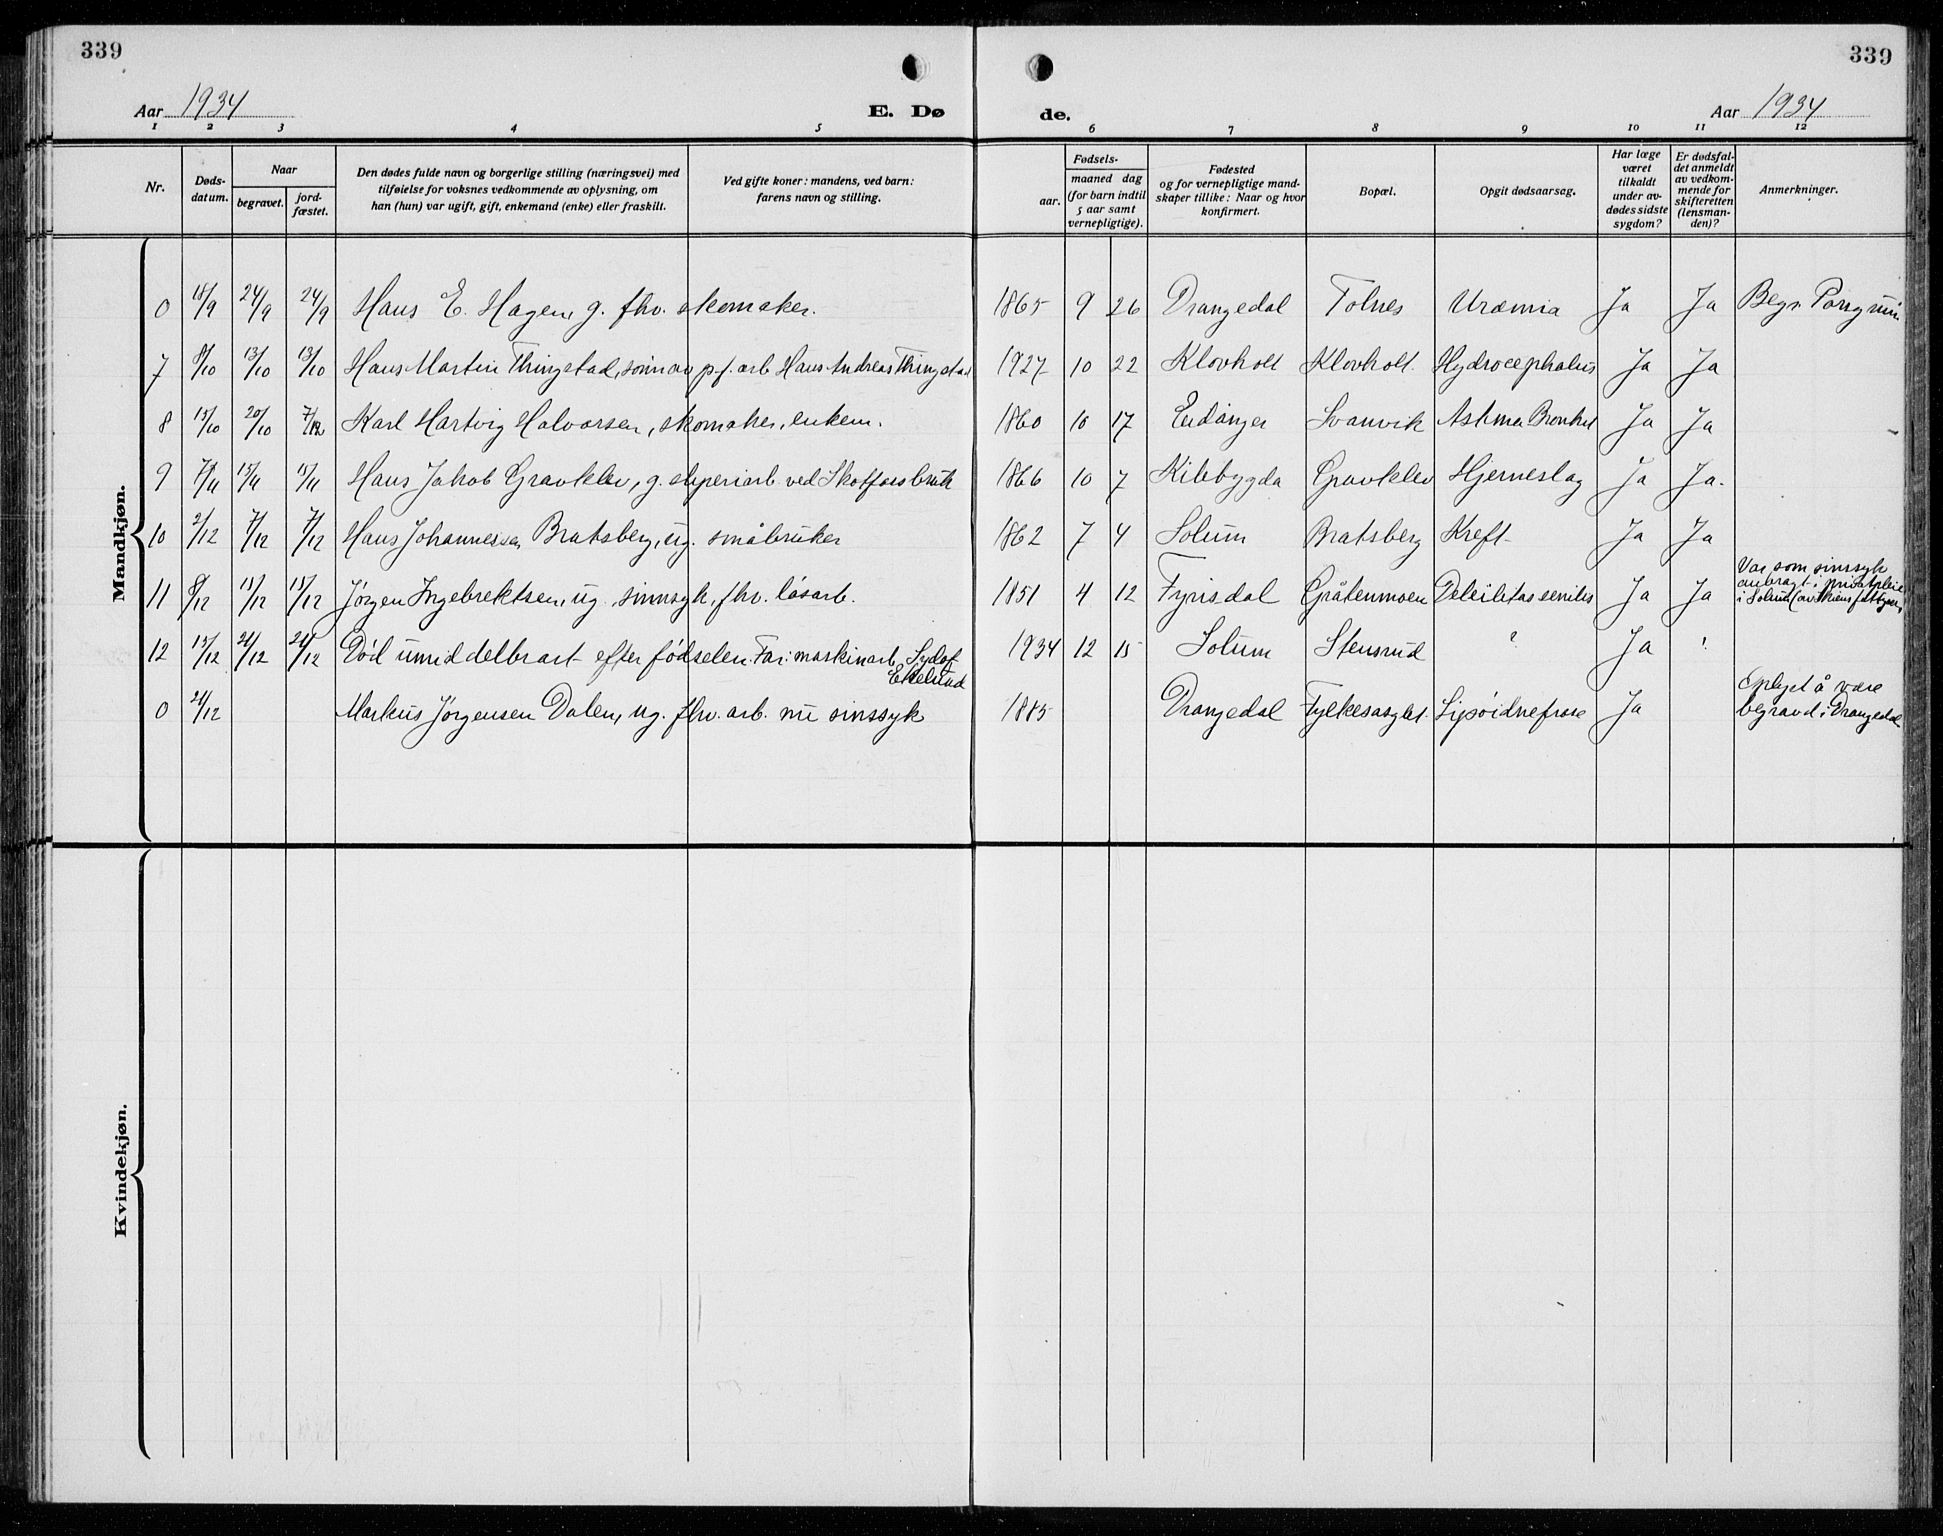 339
339
Aar 1934
E. Dø
de.
Aar 1934
1 2 3 4 5 6 7 8 9 10 11 12
Nr.
Døds-datum.
Naar
begravet.
jord-fæstet.
Den dødes fulde navn og borgerlige stilling (næringsvei) med
tilføielse for voksnes vedkommende av oplysning, om
han (hun) var ugift, gift, enkemand (enke) eller fraskilt.
Ved gifte koner: mandens, ved barn:
farens navn og stilling.
Fødsels-
aar. maaned dag
(for barn indtil
5 aar samt
vernepligtige).
Fødested
og for vernepligtige mand-
skaper tillike: Naar og hvor
konfirmert.
Bopæl.
Opgit dødsaarsag.
Har læge
været
tilkaldt
under av-
dødes sidste
sygdom?
Er dødsfal-
det anmeldt
av vedkom-
mende for
skifteretten
(lensman-
den)?
Anmerkninger.
Mandkjøn.
0 18/9 24/9 24/9 Hans E. Hagen, g. fhv. skomaker. 1865 9 26 Drangedal Tolnes Uræmia Ja Ja Begr.
7 8/10 13/10 13/10 Hans Martin Thingstad, sönn av p.f. arb Hans Andreas Thingstad 1927 10 22 Klovholt Klovholt Hydrocephalus Ja Ja
8 15/10 20/10 7/12 Karl Hartvig Halvorsen, skomaker, enkem. 1860 10 17 Eidanger Svanvik Astma Ja Ja
9 7/11 15/11 15/11 Hans Jakob Gravklev, g. sliperiarb ved Skotfossbruk 1866 10 7 Kilebygda Gravklev Hjerneslag Ja Ja.
10 2/12 7/12 7/12 Hans Johannessen Bratsberg, ug. småbruker 1862 7 4 Solum Bratsberg Kreft Ja Ja
11 8/12 15/12 15/12 Jørgen Ingebrektsen, ug., sinnsyk, fhv. løsarb. 1851 4 12 Fyrisdal Gråtenmoen senilis Ja Ja
Var som sinssyk
anbragt i privatpleie
i Solum (av Skiens
12 15/12 21/12 21/12 Død umiddelbart efter fødselen. Far: maskinarb. Sydof
Ekelund 1934 12 15 Solum Stensrud ? Ja !
0 21/12 Markus Jørgensen Dalen, ug. fhv. arb. nu sinssyk 1885 Drangedal Fylkesasylet Lipoidnefrose Ja
Oplyst å være
begravd i Drangedal
Kvindekjøn.